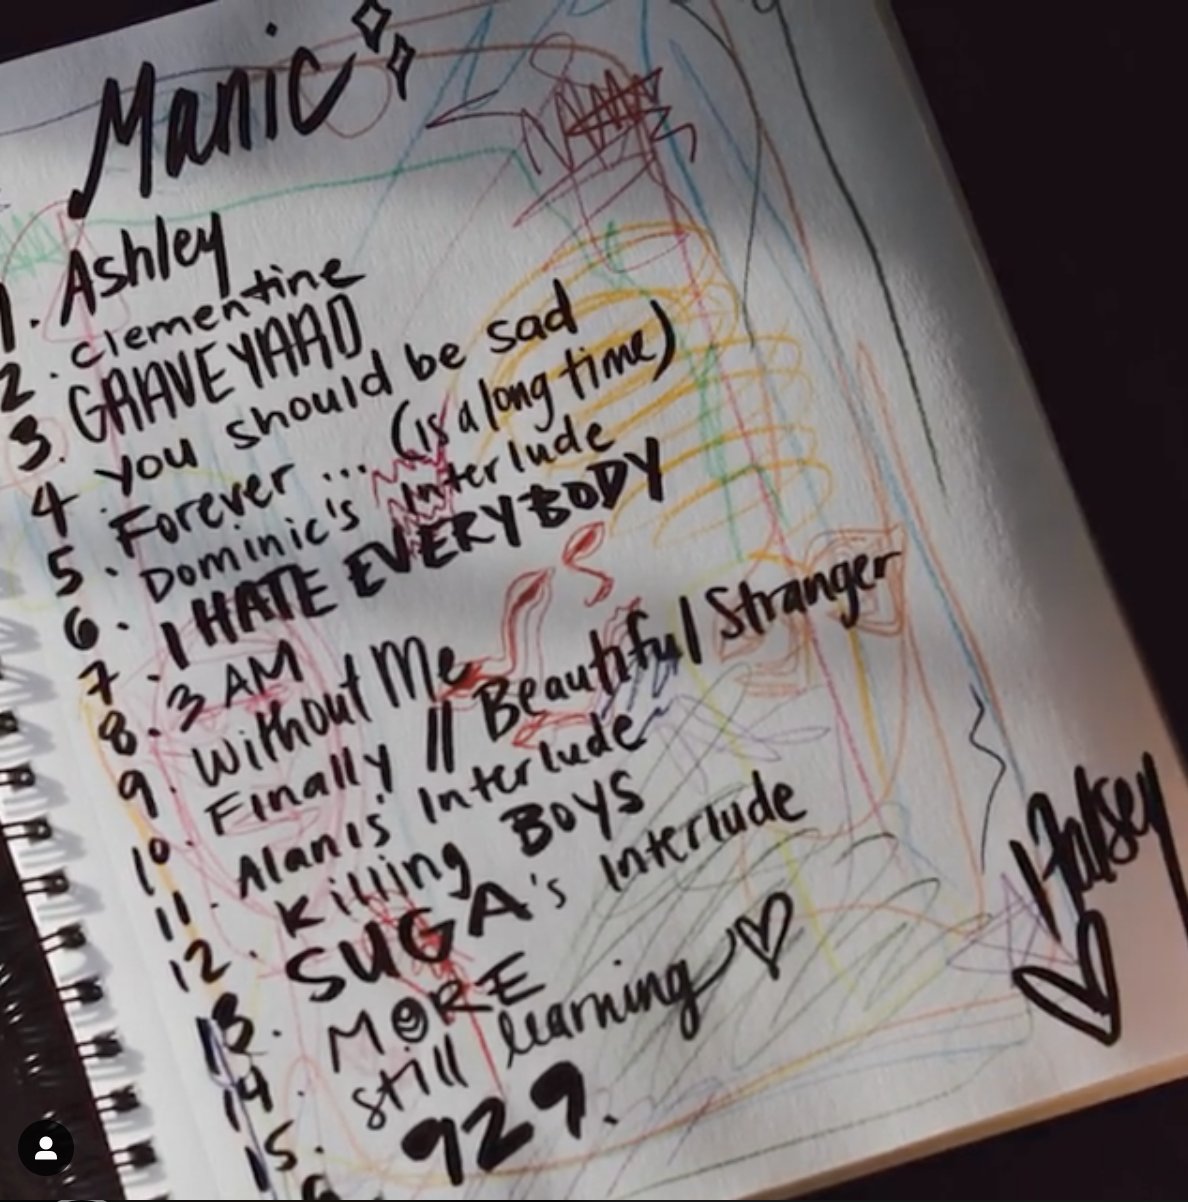 Manic
1. Ashley
2. clementine
3. GRAVEYARD
4. you should be sad
5. Forever ... (is a long time)
6. Dominic's Interlude
7. I HATE EVERYBODY
8. 3 AM
9. Without Me
10. Finally // Beautiful Stranger
11. Alanis' Interlude
12. Killing BOYS
13. SUGA's Interlude
14. MORE
15. still learning
929.
Halsey